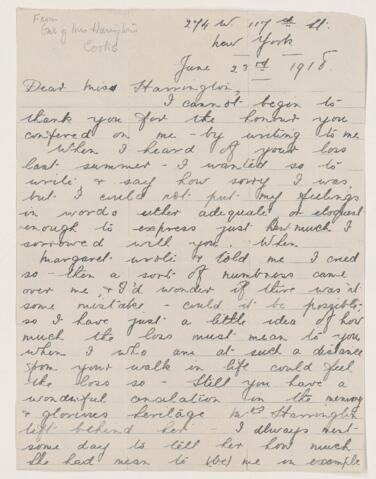 From
One of Mrs Harrington's
Cooks
274 W. 117th St.
New York
June 23rd 1918
Dear Miss Harrington,
I cannot begin to
thank you for the honour you
confered on me - by writing to me
When I heard of your loss
last summer - I wanted so to
write & say how sorry I was,
but I could not put my feelings
in words either adequate or eloquent
enough to express just how much I
sorrowed with you. When
Margaret wrote & told me I cried
so - then a sort of numbness came
over me & I'd wonder if there was'nt
some mistake - could it be possible;
so I have just a little idea of how
much the loss must mean to you
when I who am at such a distance
from your walk in life could feel
the loss so - Still you have a
wonderful consolation in the memory
& glorious heritage Mrs Harrington
left behind her - I always ment
some day to tell her how much
she had mean to (be) me in example